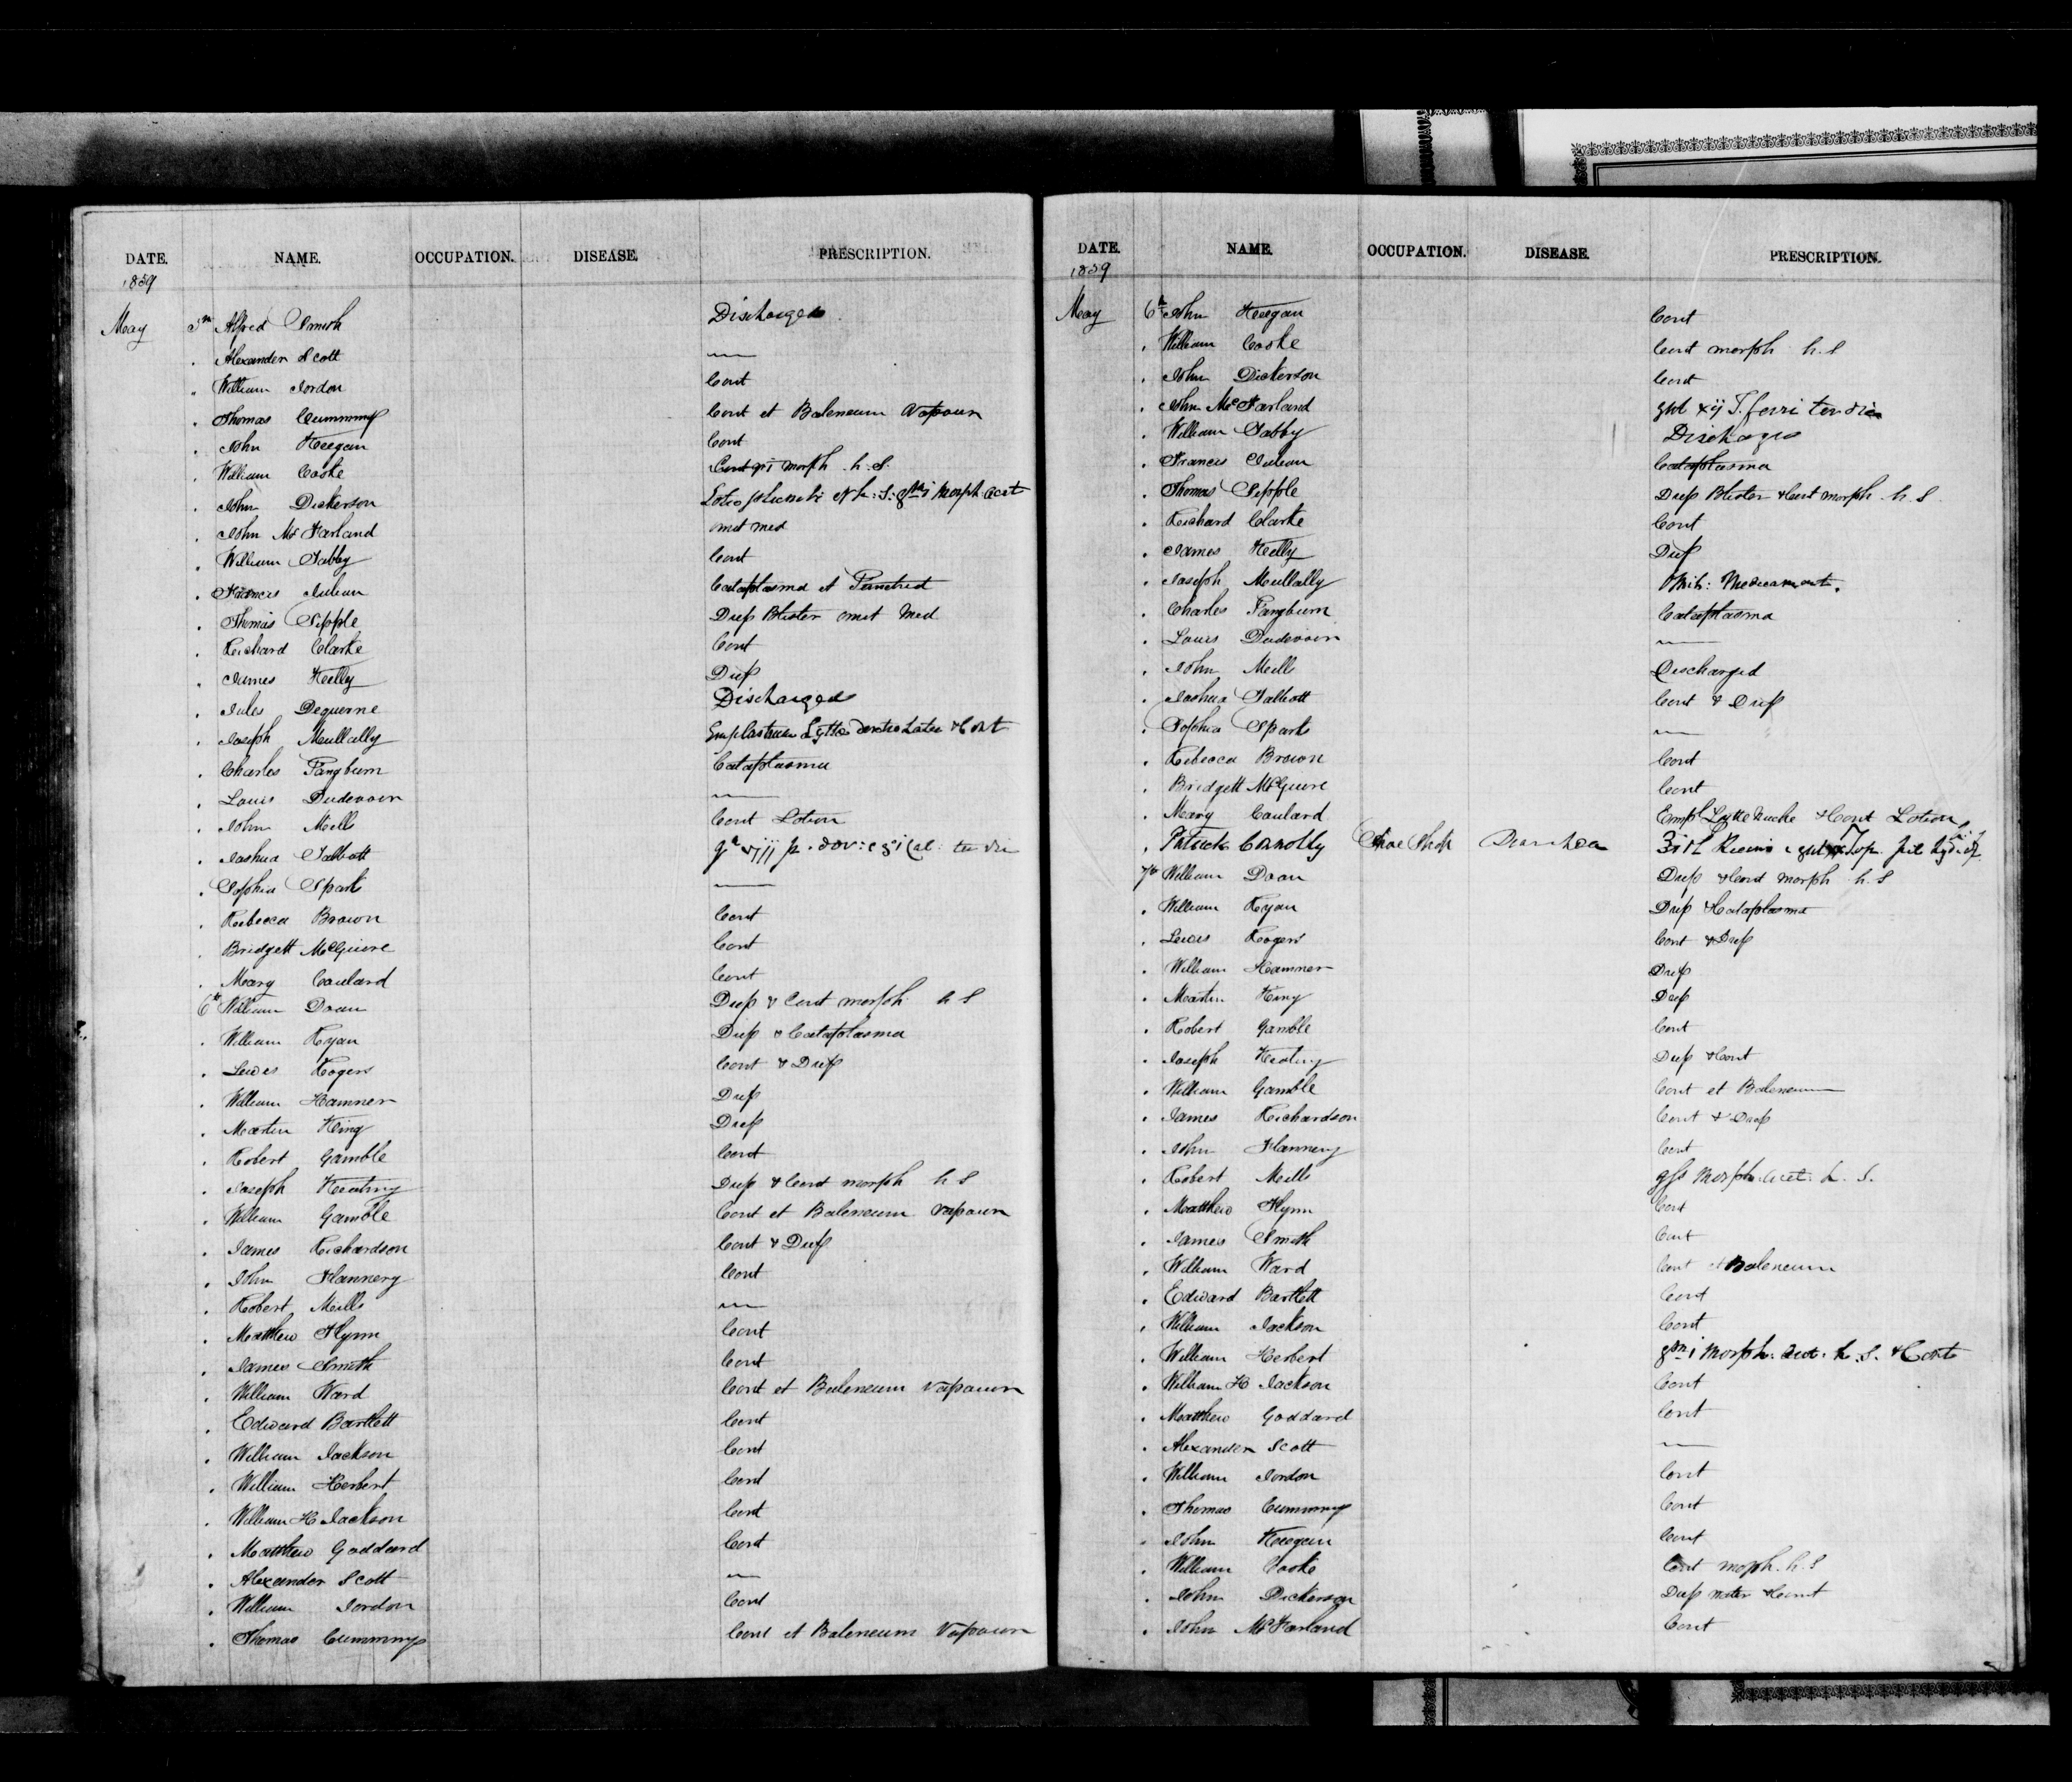 DATE. NAME. OCCUPATION. DISEASE. PRESCRIPTION.
1859
May 5th Alfred Smith Discharged
. Alexander Scott —
" William Jordon Cont
. Thomas Cummings Cont et Baleneum Vapoum
. John Keegan Cont
. William Cooke Cont gr i morph h.S.
. John Dickerson Lotio plumbi et h.S. i morph acet
. John McFarland omit med
. William Tabby Cont
. Francis Julian Cataplasma et
. Thomas Sipple Diep Blister omit Med
. Richard Clarke Cont
. James Kelly Diep
. Jules Dequerne Discharged
. Joseph Mullally Emplastrum Lyttae Latu & Cont
. Charles Pangburn Cataplasma
. Louis Dudevoin —
. John Mills Cont Lotion
. Joshua Talbott
. Sophia Sparks —
. Rebecca Brown Cont
. Bridgett McGuire Cont
. Mary Coulard Cont
6th William Doan Diep & Cont morph h S
. William Ryan Diep & Cataplasma
. Lewis Rogers Cont & Diep
. William Hamner Diep
. Martin King Diep
. Robert Gamble Cont
. Joseph Keating Diep & Cont morph h S
. William Gamble Cont et Baleneum vapoum
. James Richardson Cont & Diep
. John Flannery Cont
. Robert Mills —
. Matthew Flynn Cont
. James Smith Cont
. William Ward Cont et Baleneum vapoum
. Edward Bartlett Cont
. William Jackson Cont
. William Herbert Cont
. William H Jackson Cont
. Matthew Goddard Cont
. Alexander Scott —
. William Jordon Cont
. Thomas Cummings Cont et Baleneum Vapoum
DATE. NAME. OCCUPATION. DISEASE. PRESCRIPTION.
1859
May 6th John Keegan Cont
. William Cooke Cont morph h.S
. John Dickerson Cont
. John McFarland gut xij T. ferri ter die
. William Tabby Discharged
. Francis Julian Cataplasma
. Thomas Sipple Diep Blister & Cont morph h S
. Richard Clarke Cont
. James Kelly Diep
. Joseph Mullally Omit: Medicament.
. Charles Pangburn Cataplasma
. Louis Dudevoin —
. John Mills Discharged
. Joshua Talbott Cont & Diep
. Sophia Sparks —
. Rebecca Brown Cont
. Bridgett McGuire Cont
. Mary Coulard Emp Lytte Nuche & Cont Lotion
. Patrick Connolly Shoe Shop Diarrhea
7th William Doan Diep & Cont morph h.S
. William Ryan Diep & Cataplasma
. Lewis Rogers Cont & Diep
. William Hamner Diep
. Martin King Diep
. Robert Gamble Cont
. Joseph Keating Diep & Cont
. William Gamble Cont et Baleneum
. James Richardson Cont & Diep
. John Flannery Cont
. Robert Mills Morph. Acet. h. S.
. Matthew Flynn Cont
. James Smith Cont
. William Ward Cont et Baleneum
. Edward Bartlett Cont
. William Jackson Cont
. William Herbert i Morph. Acet. h. S. & Cont
. William H Jackson Cont
. Matthew Goddard Cont
. Alexander Scott —
. William Jordon Cont
. Thomas Cummings Cont
. John Keegan Cont
. William Cooke Cont morph. h. S
. John Dickerson Diep & Cont
. John McFarland Cont